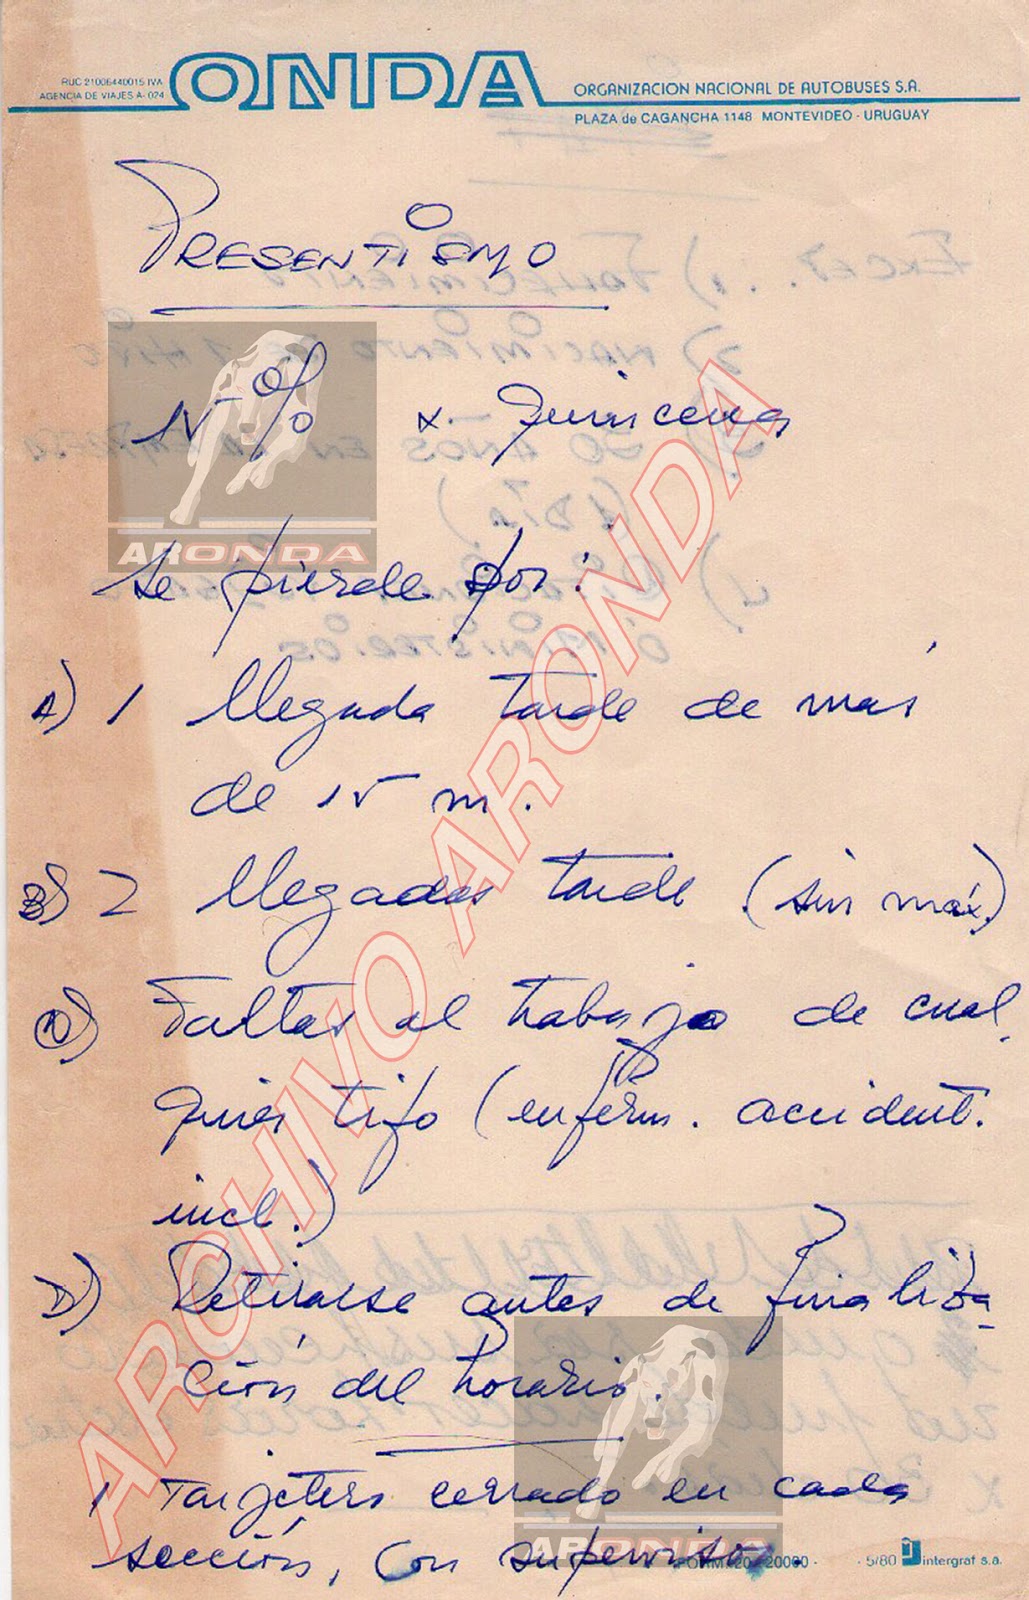 RUC 21006440015 IVA
AGENCIA DE VIAJES A- 024
ONDA
ORGANIZACION NACIONAL DE AUTOBUSES S.A.
PLAZA de CAGANCHA 1148 MONTEVIDEO - URUGUAY
PRESENTISMO
15 % x quincena
ARONDA
Se pierde por:
A) 1 llegada tarde de más
de 15 m.
B) 2 llegadas tarde (sin máx.)
Faltas al trabajo de cual
quier tipo (enferm. accident.
incl.)
D) Retirarse antes de finaliza
ción del horario.
1 Tarjetero cerrado en cada
sección, con supervisor.
ARONDA
20000 -
- 5/80 intergraf s.a.
ARCHIVO ARONDA